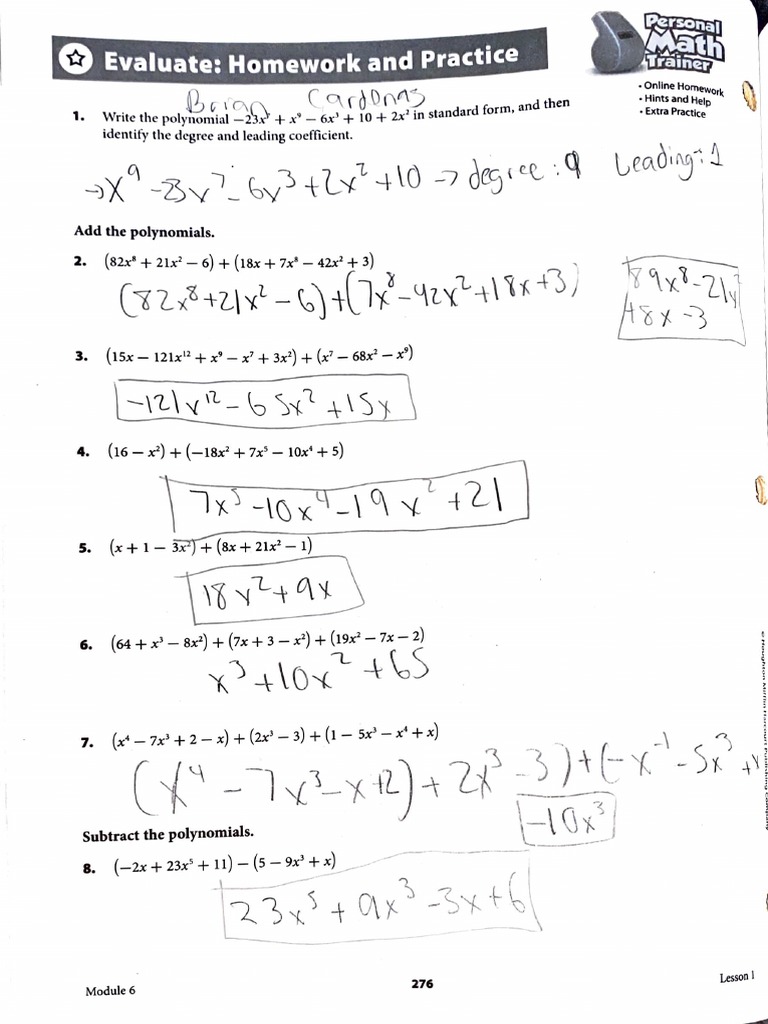 Evaluate: Homework and Practice
Personal
Math
Trainer
• Online Homework
• Hints and Help
• Extra Practice
Brian Cardenas
1. Write the polynomial −23x⁷ + x⁹ − 6x³ + 10 + 2x² in standard form, and then
identify the degree and leading coefficient.
→ x⁹ − 23x⁷ − 6x³ + 2x² + 10 → degree: 9 Leading: 1
Add the polynomials.
2. (82x⁸ + 21x² − 6) + (18x + 7x⁸ − 42x² + 3)
(82x⁸ + 21x² − 6) + (7x⁸ − 42x² + 18x + 3)
89x⁸ − 21x²
+18x − 3
3. (15x − 121x¹² + x⁹ − x⁷ + 3x²) + (x⁷ − 68x² − x⁹)
−121x¹² − 65x² + 15x
4. (16 − x²) + (−18x² + 7x⁵ − 10x⁴ + 5)
7x⁵ − 10x⁴ − 19x² + 21
5. (x + 1 − 3x²) + (8x + 21x² − 1)
18x² + 9x
6. (64 + x³ − 8x²) + (7x + 3 − x²) + (19x² − 7x − 2)
x³ + 10x² + 65
7. (x⁴ − 7x³ + 2 − x) + (2x³ − 3) + (1 − 5x³ − x⁴ + x)
(x⁴ − 7x³ − x + 2) + 2x³ − 3) + (−x⁻¹ − 5x³ + x
−10x³
Subtract the polynomials.
8. (−2x + 23x⁵ + 11) − (5 − 9x³ + x)
23x⁵ + 9x³ − 3x + 6
© Houghton Mifflin Harcourt Publishing Company
Module 6
276
Lesson 1